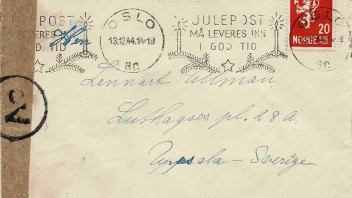 POST
LEVERES INN
OD TID
OSLO
13.12.44.14-19
8C
JULEPOST
MÅ LEVERES INN
I GOD TID
OSLO
8C
20
NORGE
A2
Lennart Ullman
Luthagsespl. 28 a.
Uppsala - Sverige